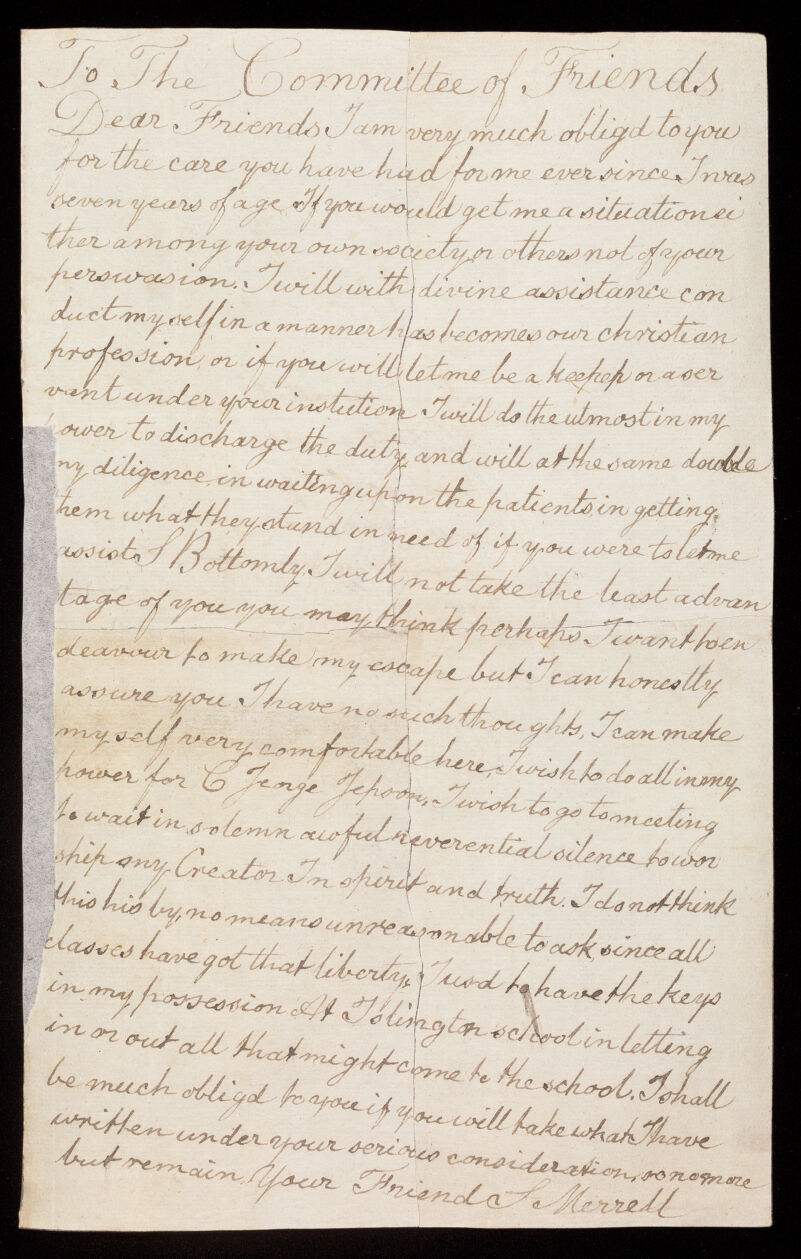 To The Committee of Friends
Dear Friends I am very much obligd to you
for the care you have had for me ever since I was
seven years of age If you would get me a situation ei
ther among your own society or others not of your
perswasion. I will with divine assistance con
duct myself in a manner has becomes our christian
profession, or if you will let me be a keeper or a ser
vant under your instution I will do the utmost in my
power to discharge the duty, and will at the same double
my diligence in waiting upon the patients in getting
them what they stand in need of if you were to let me
assist S Bottomly. I will not take the least advan
tage of you you may think perhaps I want to en
deavour to make my escape but I can honestly
assure you I have no such thoughts, I can make
myself very comfortable here, I wish to do all in my
power for C Jeorge Jepson, I wish to go to meeting
to wait in solemn awful reverential silence to wor
ship my Creator In spirit and truth. I do not think
this his by no means unreasonable to ask, since all
classes have got that liberty, I usd to have the keys
in my possession At Islington school in letting
in or out all that might come to the school. I shall
be much obligd to you if you will take what I have
written under your serious consideration, so no more
but remain Your Friend S Merrell